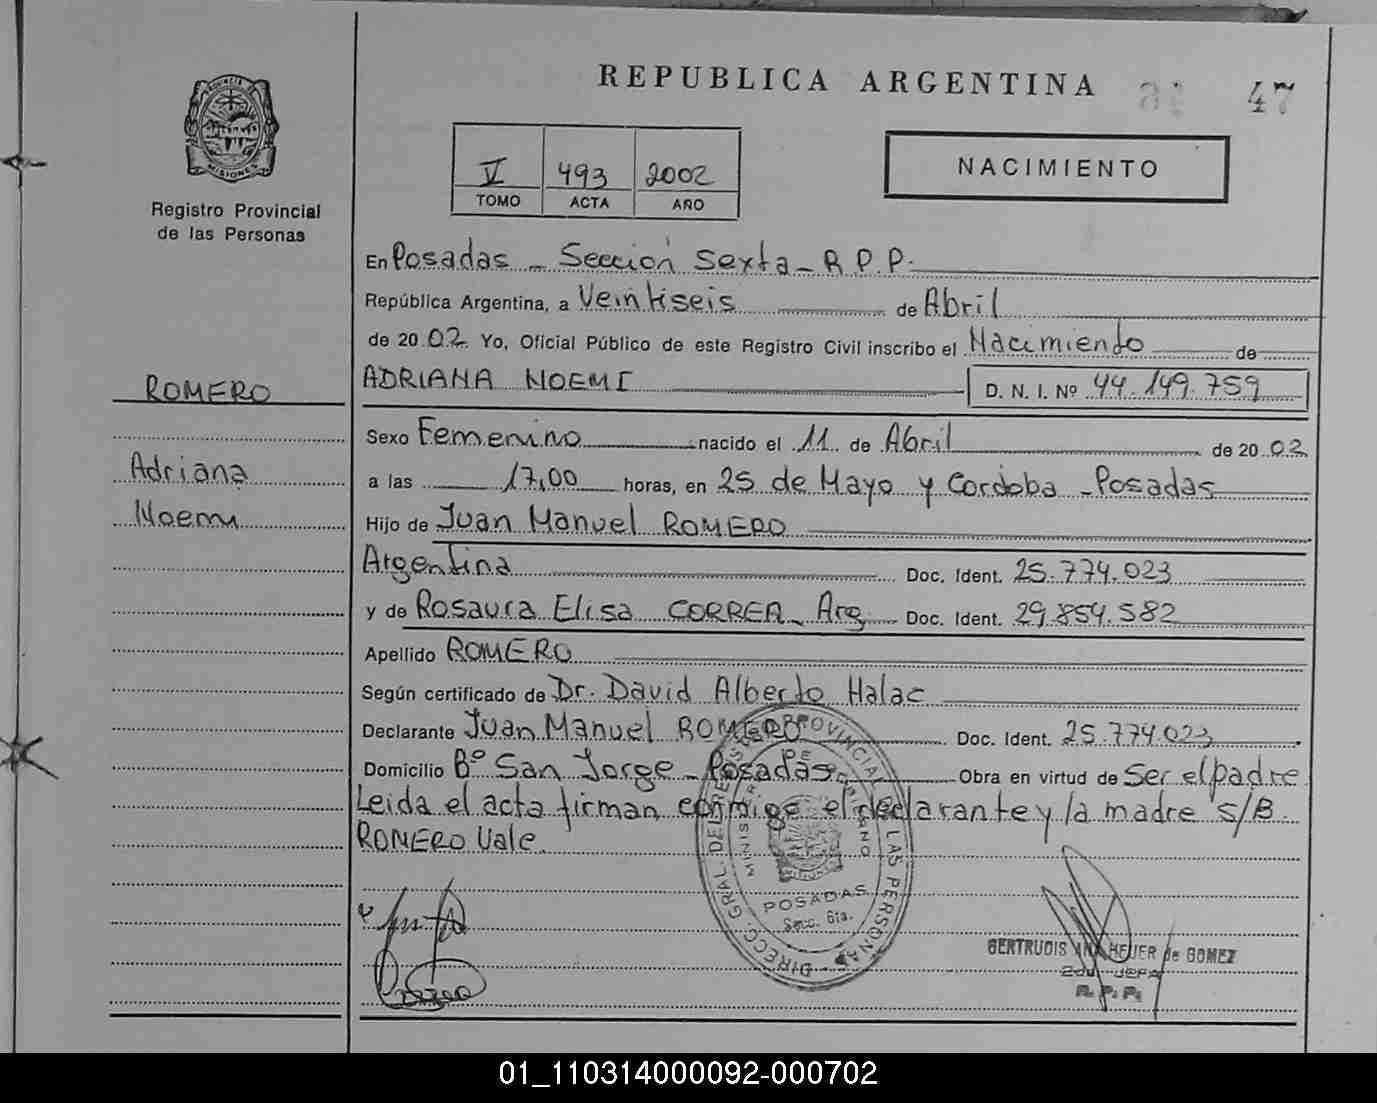 REPUBLICA ARGENTINA
47
PROVINCIA DE
MISIONES
Registro Provincial
de las Personas
V 493 2002
TOMO ACTA AÑO
NACIMIENTO
En Posadas - Sección Sexta - R.P.P.
República Argentina, a Veintiseis de Abril
de 20 02 Yo, Oficial Público de este Registro Civil inscribo el Nacimiento de
ADRIANA NOEMI D. N. I. Nº 44.149.759
ROMERO
Adriana
Noemi
Sexo Femenino nacido el 11 de Abril de 20 02
a las 17,00 horas, en 25 de Mayo y Cordoba - Posadas
Hijo de Juan Manuel ROMERO
Argentina Doc. Ident. 25.774.023
y de Rosaura Elisa CORREA - Arg Doc. Ident. 29.854.582
Apellido ROMERO
Según certificado de Dr. David Alberto Halac
Declarante Juan Manuel ROMERO Doc. Ident. 25.774.023
Domicilio Bº San Jorge - Posadas Obra en virtud de Ser el padre
Leida el acta firman conmigo el declarante y la madre S/B.
ROMERO Vale.
DIRECC. GRAL. DEL REGISTRO PROVINCIAL DE LAS PERSONAS
POSADAS
Secc. 6ta.
GERTRUDIS ANA HEUER de GOMEZ
2da JEFA
R. P. P.
01_110314000092-000702